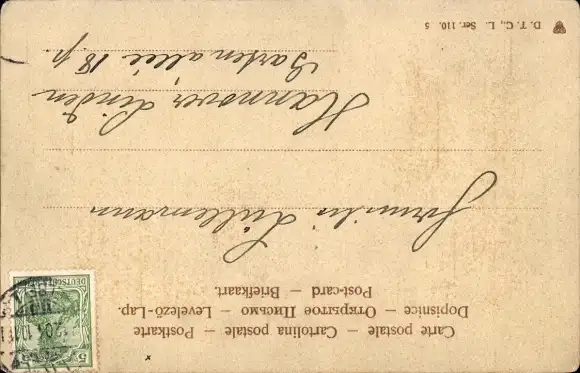 Carte postale — Cartolina postale — Postkarte
Dopisnice — Открытое Письмо — Levelező-Lap.
Post-card — Briefkaart.
Familie Lüllemann
Hannover, Linden
Gartenallee 18 p.
D. T. C., L. Ser. 110. 5
5